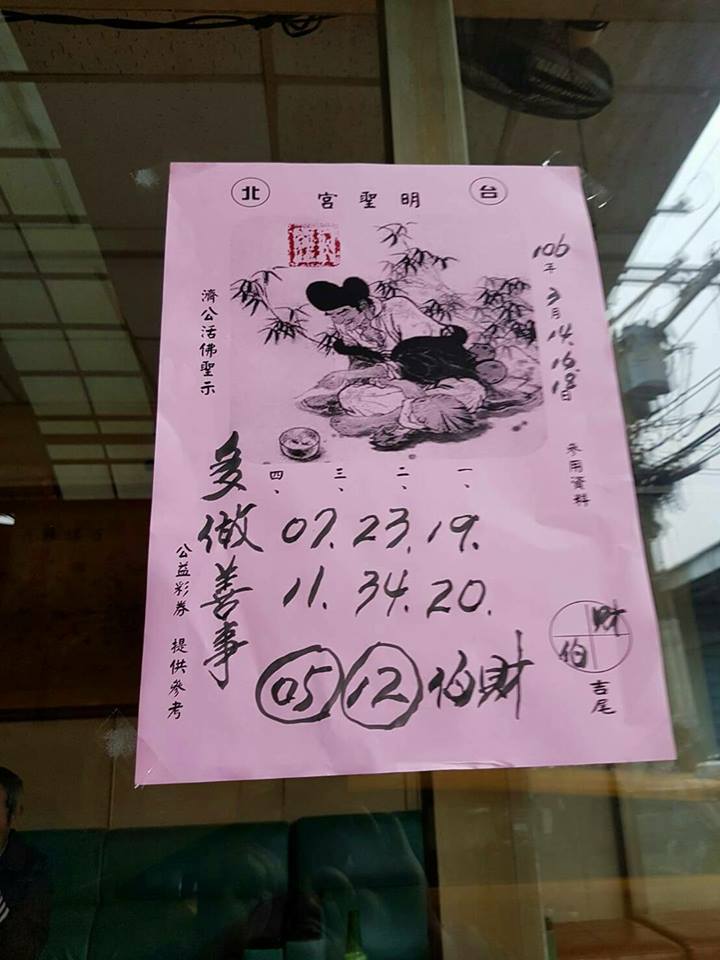 台 明聖宮 北
106年3月14.16.18日
參用資料
濟公活佛聖示
一、 二、 三、 四、
07. 23. 19.
11. 34. 20.
05 12 伯財
多做善事
財
伯
吉尾
公益彩券 提供參考